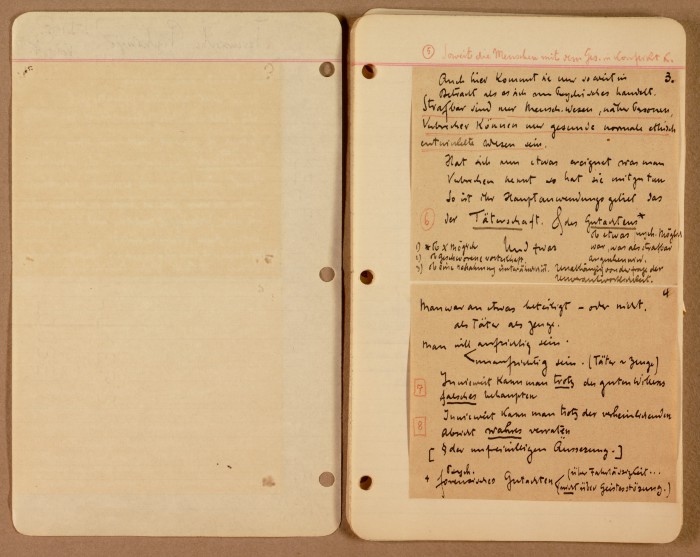 ⑤ Soweit die Menschen mit dem Ges. in Konflikt k.
3.
Auch hier kommt sie nur so weit in
Betracht als es sich um Psychisches handelt.
Strafbar sind nur Mensch. wesen, näher Personen,
Verbrecher können nur gesunde normale ethisch
entwickelte Wesen sein.
Hat sich nun etwas ereignet was man
Verbrechen nennt so hat sie mitzutun
So ist ihr Hauptanwendungsgebiet das
⑥ der Täterschaft. & des Gutachtens*
ob etwas psych. möglich
war, was als strafbar
anzusehen wird.
Unabhängig von der Frage der
Unverantwortlichkeit.
Und zwar
1) * ob X möglich
2) ob Geschworene
3) ob eine
4
Man war an etwas beteiligt – oder nicht.
als Täter als Zeuge.
Man will aufrichtig sein.
unaufrichtig sein. (Täter u Zeuge)
7 Inwieweit kann man trotz des guten Willens
falsches behaupten
8 Inwieweit kann man trotz der verheimlichenden
Absicht wahres verraten
[§ der unfreiwilligen Äusserung.]
psych.
+ forensisches Gutachten (über Fahrlässigkeit...
(nicht über Geistesstörung.)